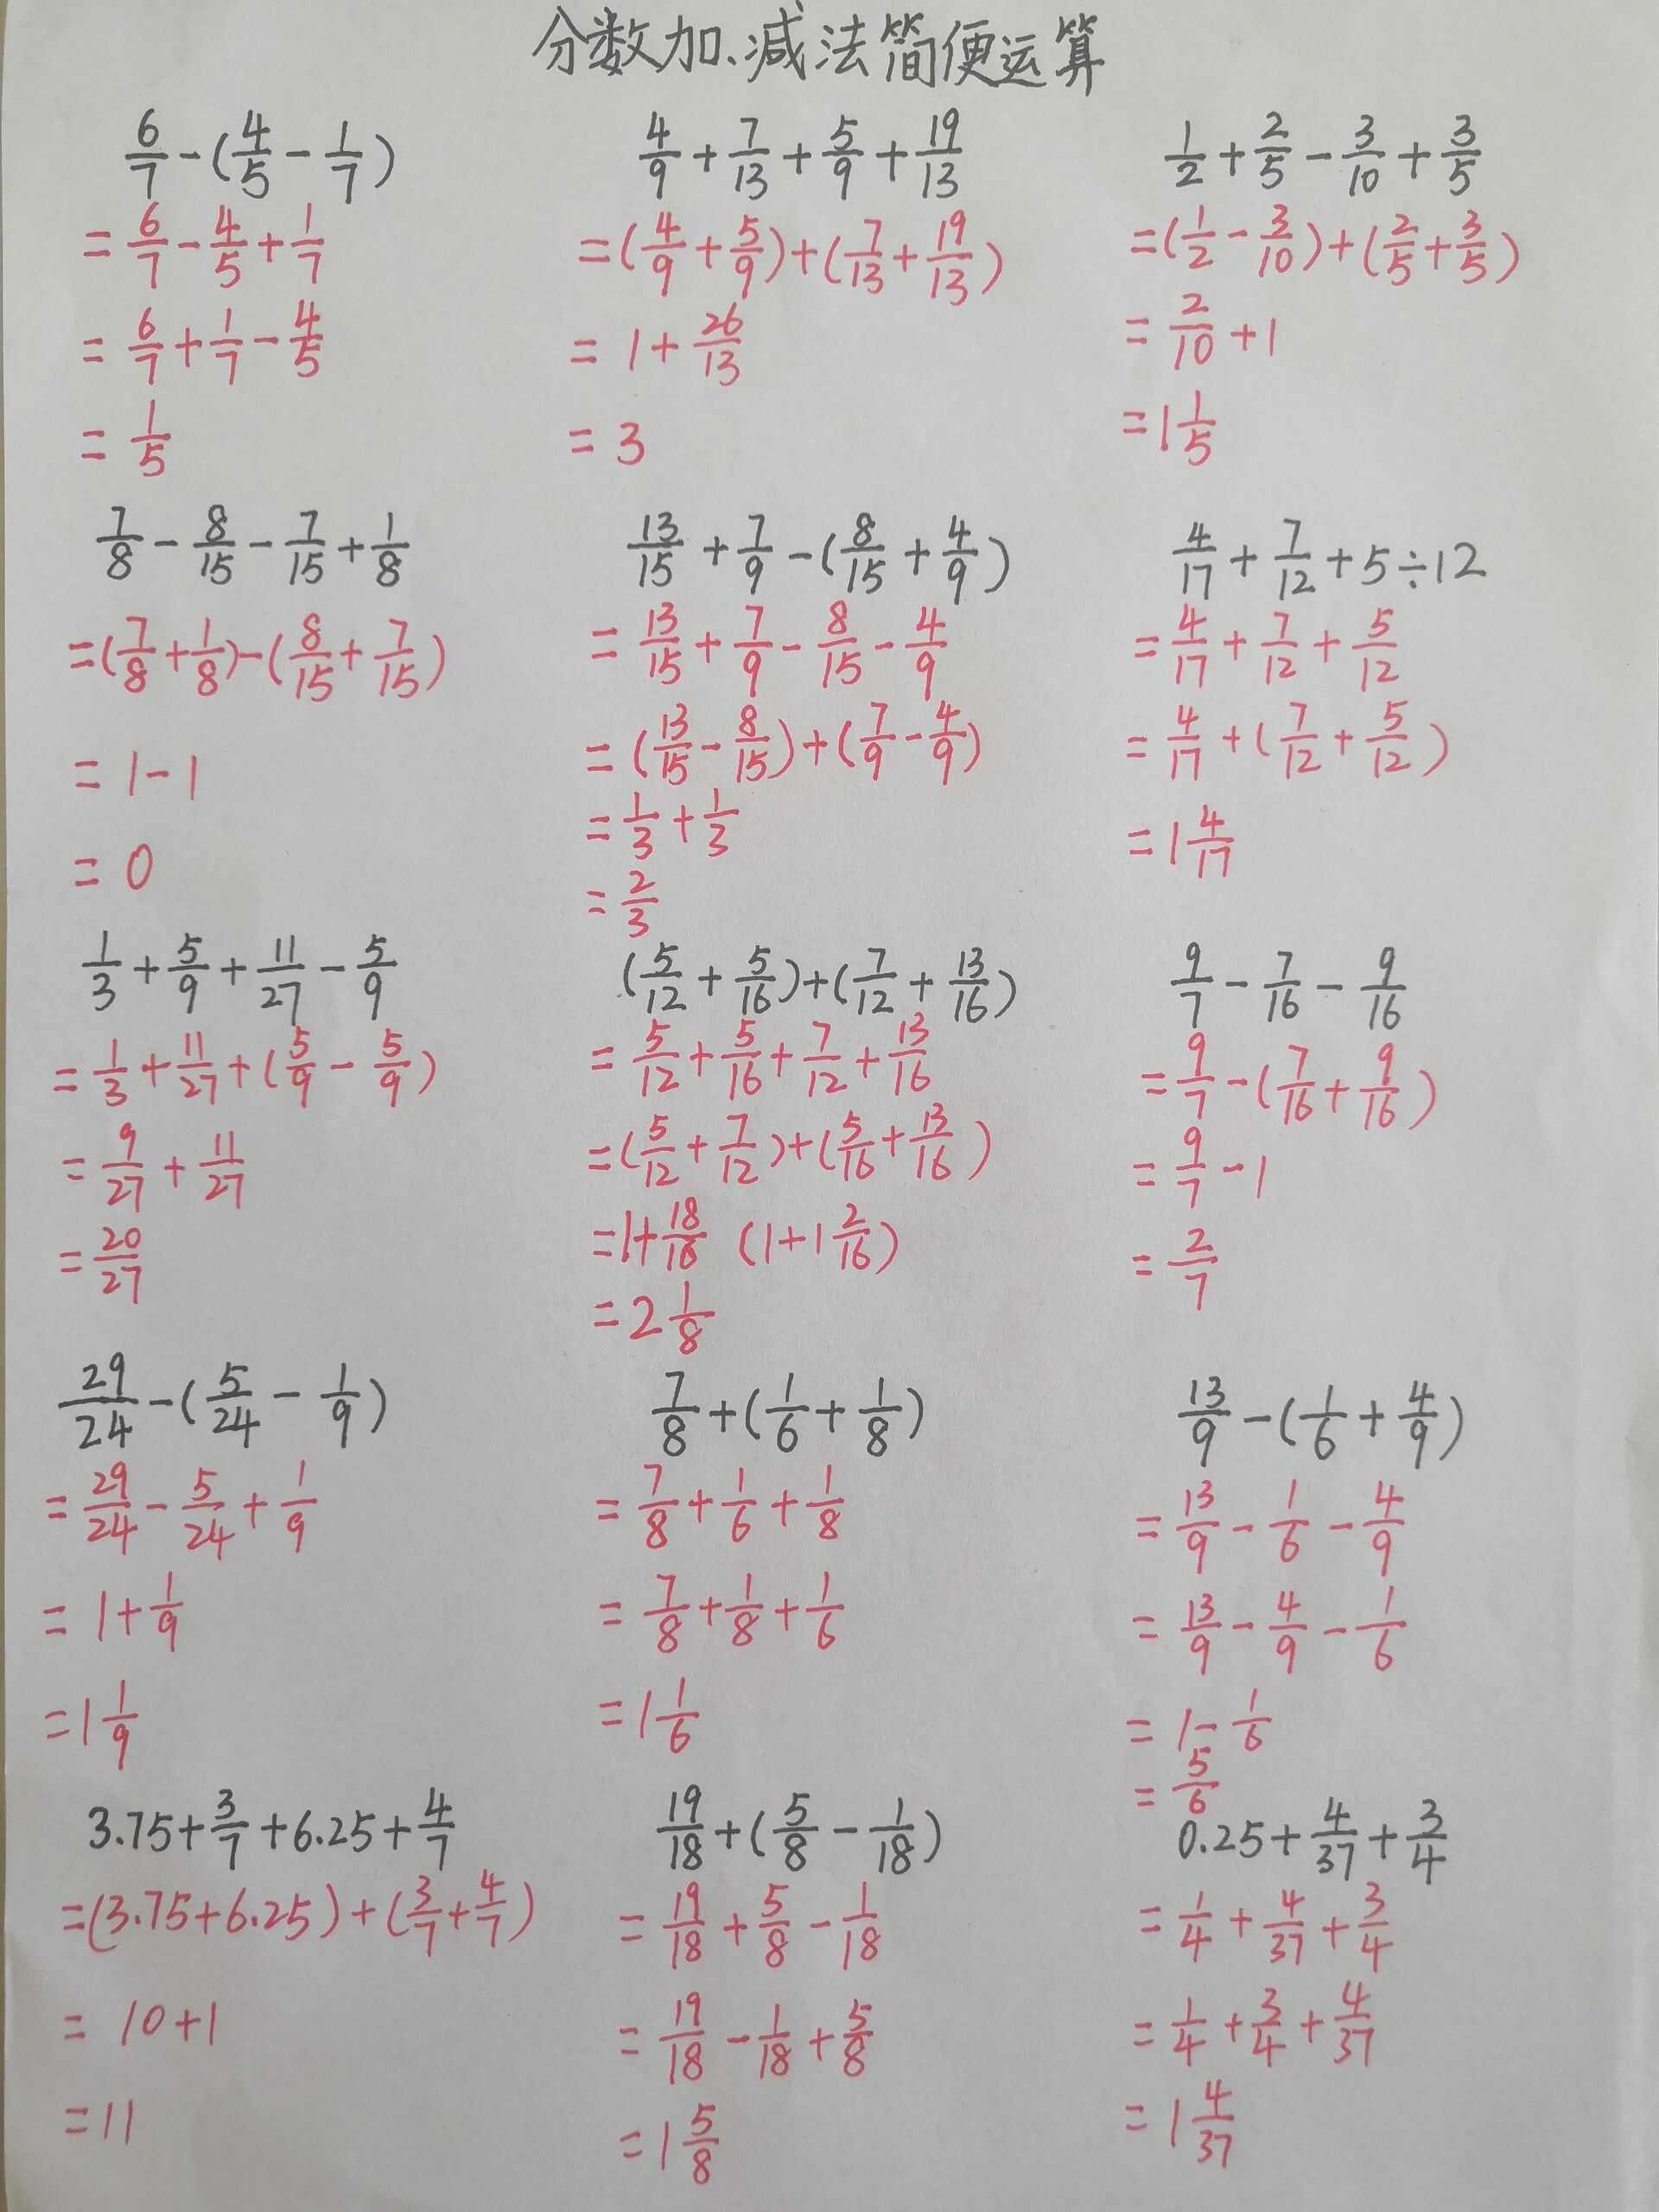 分数加、减法简便运算
6/7-(4/5-1/7)
=6/7-4/5+1/7
=6/7+1/7-4/5
=1/5
4/9+7/13+5/9+19/13
=(4/9+5/9)+(7/13+19/13)
=1+26/13
=3
1/2+2/5-3/10+3/5
=(1/2-3/10)+(2/5+3/5)
=2/10+1
=1 1/5
7/8-8/15-7/15+1/8
=(7/8+1/8)-(8/15+7/15)
=1-1
=0
13/15+7/9-(8/15+4/9)
=13/15+7/9-8/15-4/9
=(13/15-8/15)+(7/9-4/9)
=1/3+1/3
=2/3
4/17+7/12+5÷12
=4/17+7/12+5/12
=4/17+(7/12+5/12)
=1 4/17
1/3+5/9+11/27-5/9
=1/3+11/27+(5/9-5/9)
=9/27+11/27
=20/27
(5/12+5/16)+(7/12+13/16)
=5/12+5/16+7/12+13/16
=(5/12+7/12)+(5/16+13/16)
=1+18/16 (1+1 2/16)
=2 1/8
9/7-7/16-9/16
=9/7-(7/16+9/16)
=9/7-1
=2/7
29/24-(5/24-1/9)
=29/24-5/24+1/9
=1+1/9
=1 1/9
7/8+(1/6+1/8)
=7/8+1/6+1/8
=7/8+1/8+1/6
=1 1/6
13/9-(1/6+4/9)
=13/9-1/6-4/9
=13/9-4/9-1/6
=1-1/6
=5/6
3.75+3/7+6.25+4/7
=(3.75+6.25)+(3/7+4/7)
=10+1
=11
19/18+(5/8-1/18)
=19/18+5/8-1/18
=19/18-1/18+5/8
=1 5/8
0.25+4/37+3/4
=1/4+4/37+3/4
=1/4+3/4+4/37
=1 4/37